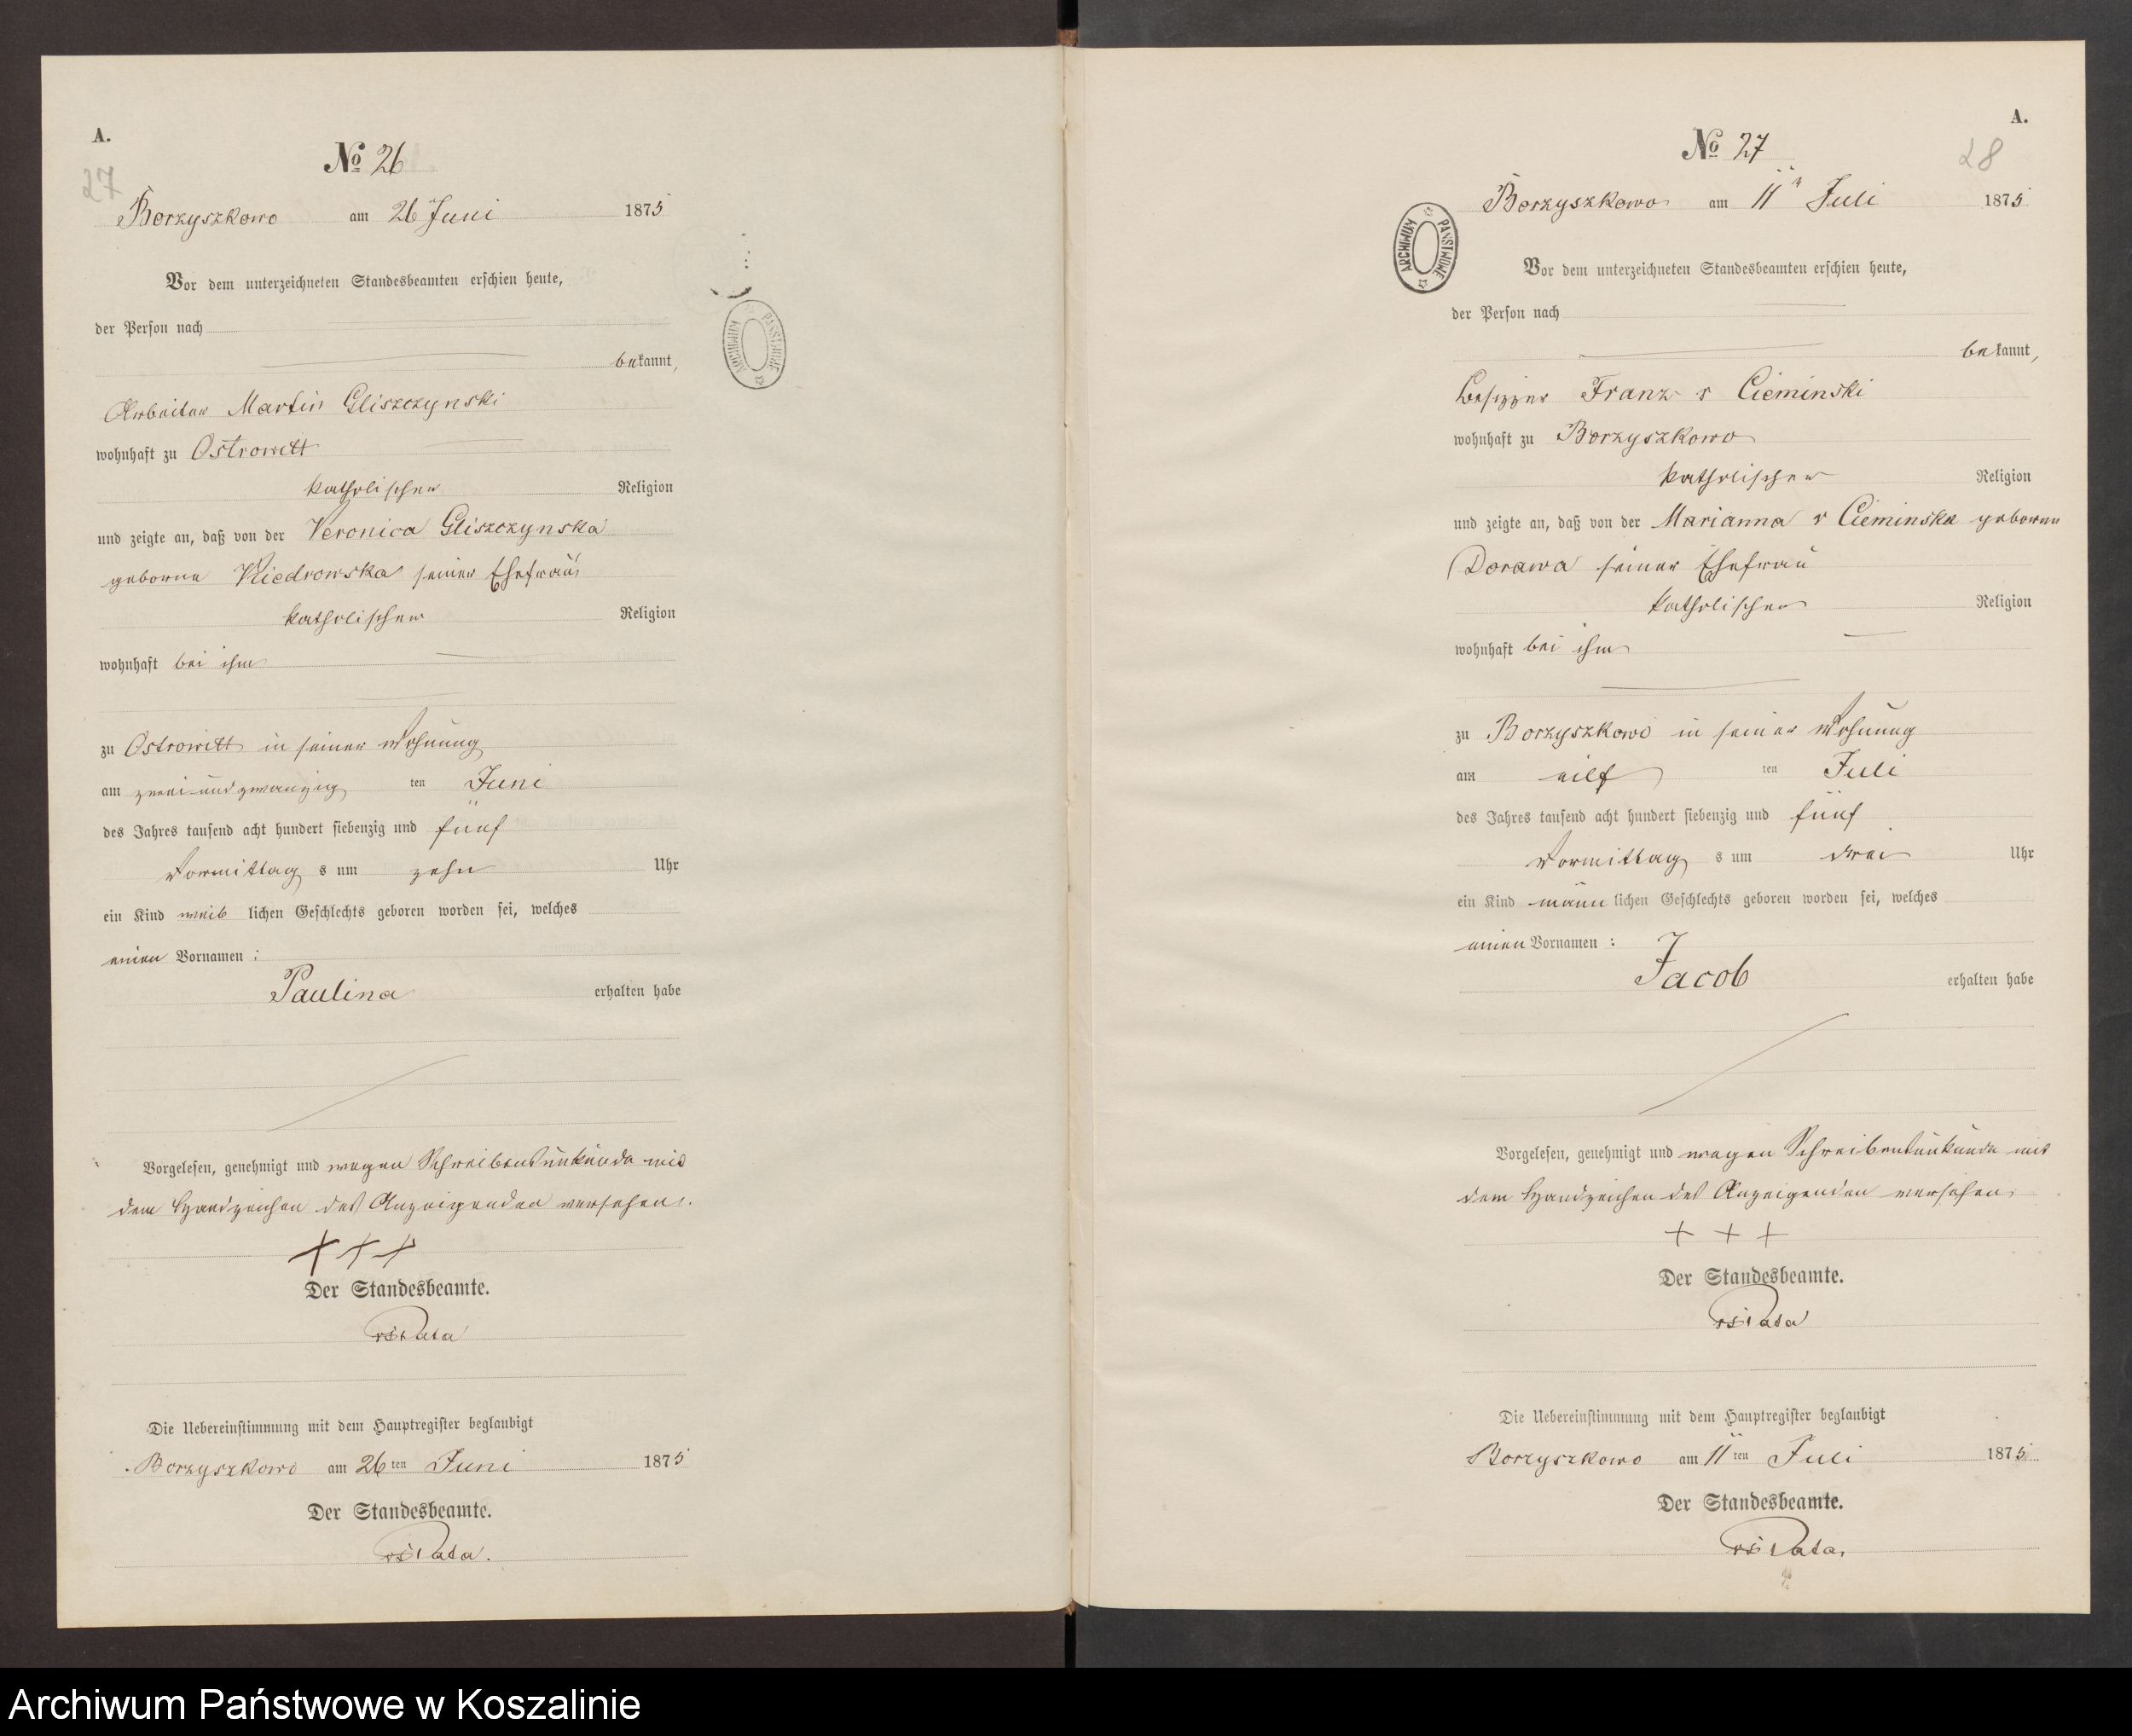 A.
№ 26
27
Borzyszkowo am 26 Juni 1875
Vor dem unterzeichneten Standesbeamten erschien heute,
der Person nach
bekannt,
Arbeiter Martin Gliszczynski
wohnhaft zu Ostrowitt
katholischer Religion
und zeigte an, daß von der Veronica Gliszczynska
geborne Kiedrowska seiner Ehefrau
katholischer Religion
wohnhaft bei ihm
zu Ostrowitt in seiner Wohnung
am zwei und zwanzig ten Juni
des Jahres tausend acht hundert siebenzig und fünf
Vormittag s um zehn Uhr
ein Kind weib lichen Geschlechts geboren worden sei, welches
einen Vornamen :
Paulina erhalten habe
Vorgelesen, genehmigt und wegen Schreibensunkunde mit
dem Handzeichen des Anzeigenden versehen.
+ + +
Der Standesbeamte.
Die Uebereinstimmung mit dem Hauptregister beglaubigt
Borzyszkowo am 26 ten Juni 1875
Der Standesbeamte.
ARCHIWUM PAŃSTWOWE
A.
№ 27
28
Borzyszkowo am 11 Juli 1875
ARCHIWUM PAŃSTWOWE
Vor dem unterzeichneten Standesbeamten erschien heute,
der Person nach
bekannt,
Besitzer Franz v Cieminski
wohnhaft zu Borzyszkowo
katholischer Religion
und zeigte an, daß von der Marianna v Cieminska geborne
Dorawa seiner Ehefrau
katholischer Religion
wohnhaft bei ihm
zu Borzyszkowo in seiner Wohnung
am eilf ten Juli
des Jahres tausend acht hundert siebenzig und fünf
Vormittag s um drei Uhr
ein Kind männ lichen Geschlechts geboren worden sei, welches
einen Vornamen :
Jacob erhalten habe
Vorgelesen, genehmigt und wegen Schreibensunkunde mit
dem Handzeichen des Anzeigenden versehen.
+ + +
Der Standesbeamte.
Die Uebereinstimmung mit dem Hauptregister beglaubigt
Borzyszkowo am 11 ten Juli 1875
Der Standesbeamte.
Archiwum Państwowe w Koszalinie